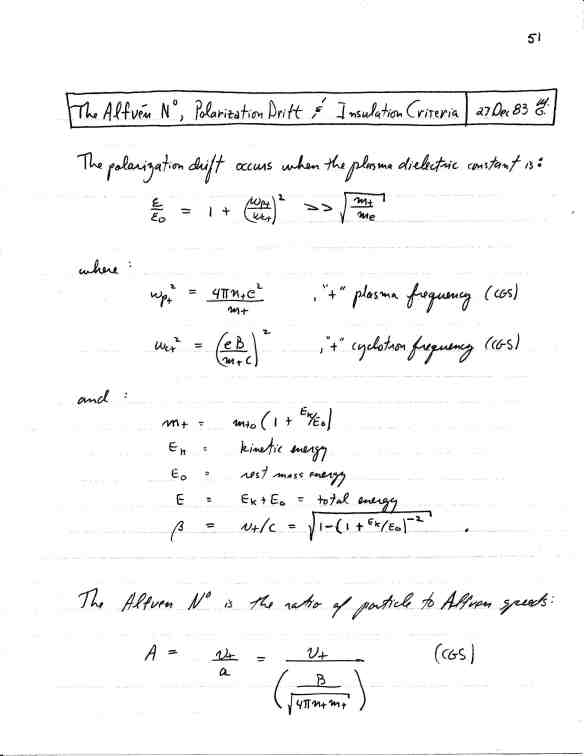 51
The Alfvén Nº, Polarization Drift & Insulation Criteria | 27 Dec 83
The polarization drift occurs when the plasma dielectric constant is:
ε/ε₀ = 1 + (ωp+/ωc+)² >> √(m+/me)
where :
ωp+² = 4πn+e²/m+ , "+" plasma frequency (CGS)
ωc+² = (eB/m+c)² , "+" cyclotron frequency (CGS)
and :
m+ = m+o (1 + Ek/Eo)
Ek = kinetic energy
Eo = rest mass energy
E = Ek + Eo = total energy
β = v+/c = √(1-(1 + Ek/Eo)⁻²) .
The Alfven Nº is the ratio of particle to Alfven speeds:
A = v+/a = v+/(B/√(4πn+m+)) (CGS)